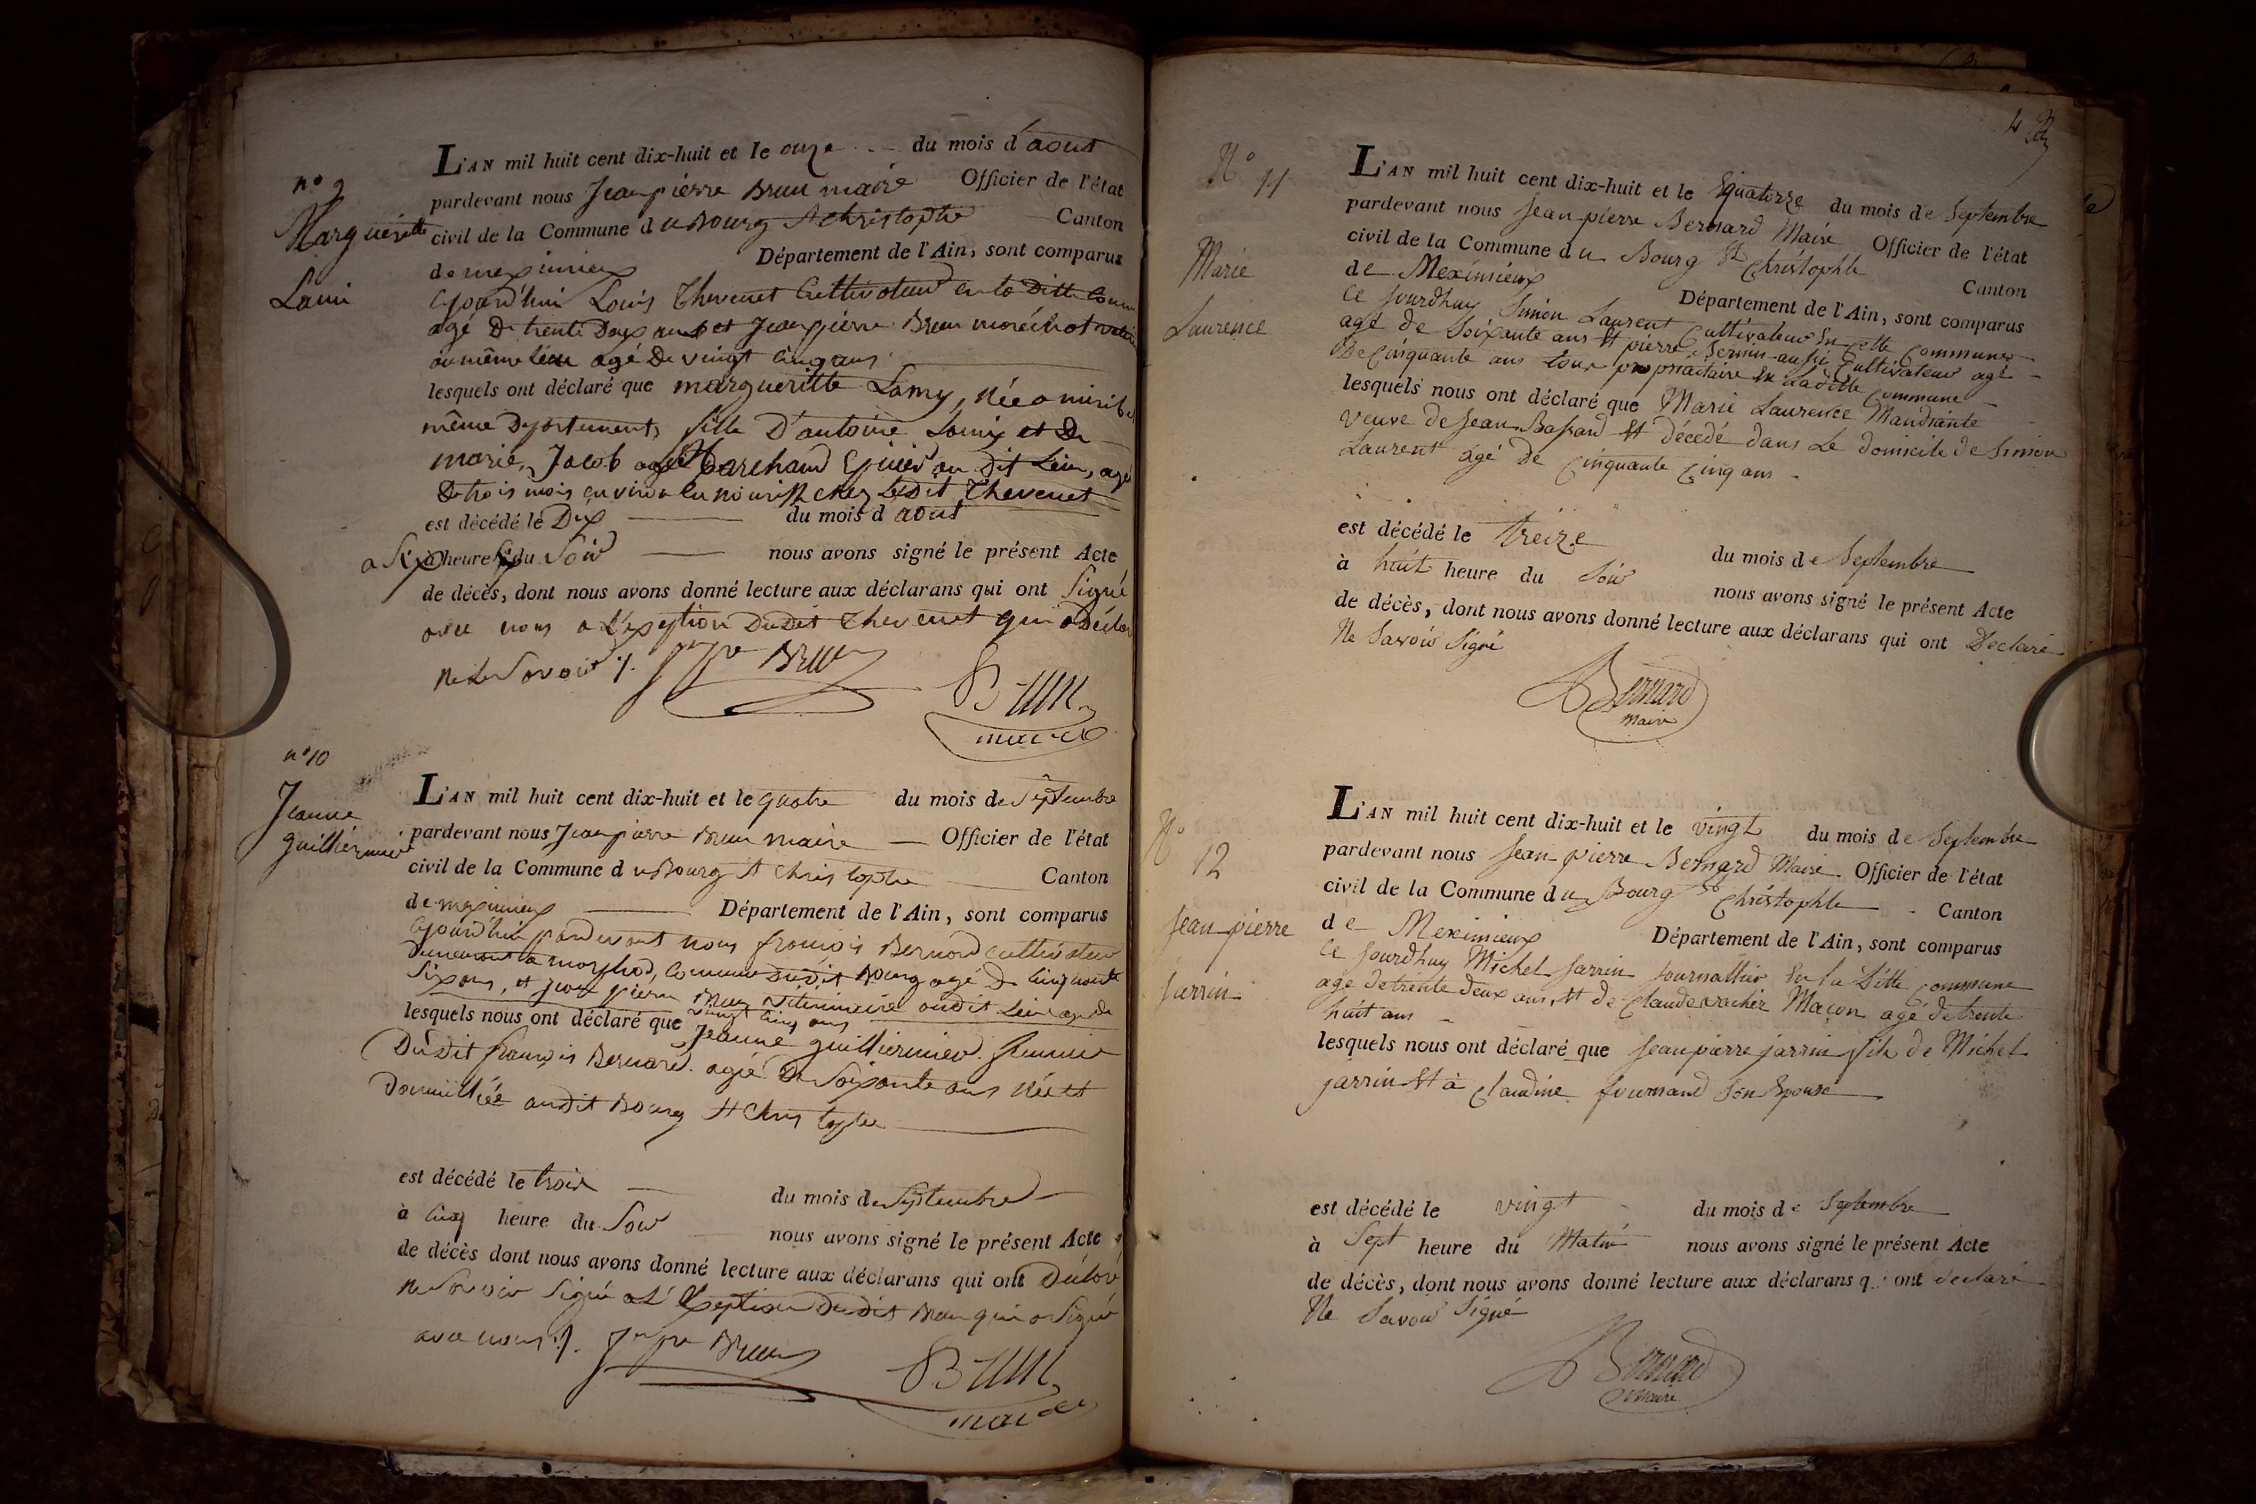 n° 9
Margueritte
Lami
L'AN mil huit cent dix-huit et le onze du mois d'aout
pardevant nous Jean pierre Brun maire Officier de l'état
civil de la Commune du Bourg St Christophe Canton
de meximieux Département de l'Ain, sont comparus
Louis Thevenet Cultivateur en la Ditte
agé De trente Deux ans et Jean pierre Brun
au même lieu agé De vingt cinq ans
lesquels ont déclaré que margueritte Lamy, Née a
même Département, fille D'antoine Lamy et De
marie Jacob Marchand Epicier au Dit Lieu, agé
De trois mois environ en nourisse chez LeDit Thevenet
est décédé le Dix du mois d aout
a Six heures du Soir nous avons signé le présent Acte
de décès, dont nous avons donné lecture aux déclarans qui ont Signé
avec nous a L'exeption DuDit Thevenet qui a Déclaré
ne Le Savoir ./. Brun Brun
maire
n° 10
Jeanne
guilliermier
L'AN mil huit cent dix-huit et le quatre du mois de Septembre
pardevant nous Jean pierre Brun maire Officier de l'état
civil de la Commune du Bourg St Christophe Canton
de meximieux Département de l'Ain, sont comparus
pardevant nous françois Bernard cultivateur
Demeurant a Commune DuDit Bourg agé De cinquante
Six ans, et jean pierre Brun veterinaire audit Lieu agé de
vingt cinq ans
lesquels nous ont déclaré que Jeanne guilliermier femme
DuDit françois Bernard agée De Soixante ans Née et
Domiciliée audit Bourg St Christophe
est décédé le trois du mois de Septembre
à cinq heure du Soir nous avons signé le présent Acte
de décès dont nous avons donné lecture aux déclarans qui ont Déclaré
ne Savoir Signer a L'Exeption DuDit Brun qui a Signé
avec nous ./. Brun Brun
maire
4
N° 11
Marie
Laurence
L'AN mil huit cent dix-huit et le quatorze du mois de Septembre
pardevant nous Jean pierre Bernard Maire Officier de l'état
civil de la Commune du Bourg St Christophle Canton
de Meximieux Département de l'Ain, sont comparus
Ce Jourdhuy Simon Laurent Cultivateur En cette Commune
agé de Soixante ans Et pierre Sernin aussi Cultivateur agé
De Cinquante ans tous propriaitaire En Laditte Commune
lesquels nous ont déclaré que Marie Laurence
veuve de Jean Bassard Et décédé dans Le domicile de Simon
Laurent agé de Cinquante Cinq ans
est décédé le treize du mois de Septembre
à huit heure du Soir nous avons signé le présent Acte
de décès, dont nous avons donné lecture aux déclarans qui ont Declaré
Ne Savoir Signé
Bernard
maire
N° 12
Jean pierre
Jarrin
L'AN mil huit cent dix-huit et le vingt du mois de Septembre
pardevant nous Jean pierre Bernard Maire Officier de l'état
civil de la Commune du Bourg St Christophle Canton
de Meximieux Département de l'Ain, sont comparus
Ce Jourdhuy Michel Jarrin Journallier En La ditte Commune
age de trente deux ans, Et de Claude vacher Maçon agé de trente
huit ans
lesquels nous ont déclaré que Jean pierre jarrin fils de Michel
jarrin Et à Claudine fournand Son Epouse
est décédé le vingt du mois de Septembre
à Sept heure du Matin nous avons signé le présent Acte
de décès, dont nous avons donné lecture aux déclarans q ont declaré
Ne Savoir Signé
Bernard
maire